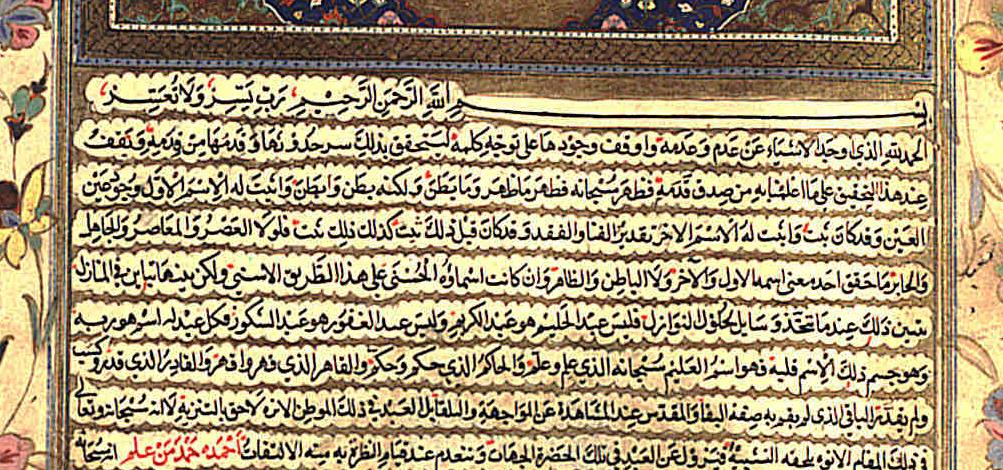 بسم الله الرحمن الرحيم رب يسر ولا تعسر
الحمد لله الذي اوجد الاشياء عن عدم وعدمه واوقف وجودها على توجه كلمه ليتحقق بذلك سر حدوثها وقدمها من قدمه ونقف
عند هذا التحقيق على ما اعلمنا به من صدق قدمه فظهر سبحانه فظهر ما ظهر وما بطن ولكنه بطن وابطن واثبت له الاسم الاول وجود عين
العين وقد كان ثبت واثبت له الاسم الاخر تقدير الفنا والفقد وقد كان قبل ذلك ثبت كذلك ذلك ثبت فلولا العصر والمعاصر والجاهل
والخابر ما حقق احد معنى اسمه الاول والآخر ولا الباطن والظاهر وان كانت اسماؤه الحسنى على هذا الطريق الاسنى ولكن بينها تباين في المنازل
تبين ذلك عندما تتخذ وسايل لحلول النوازل فليس عبد الحليم هو عبد الكريم وليس عبد الغفور هو عبد الشكور فكل عبد له اسم هو ربه
وهو جسم ذلك الاسم قلبه فهو اسم العليم سبحانه الذي علم وعلم والحاكم الذي حكم وحكم والقاهر الذي قهر واقهر والقادر الذي قدر وكسب
ولم يقدر الباقي الذي لم يقم به صفة البقا والمقدس عند المشاهدة عن المواجهة والتلقا بل العبد في ذلك الموطن الانزه لاحق بالتنزيه لا انه سبحانه وتعالى
في ذلك المقام الانزه يلحقه التشبيه فتزول عن العبد في تلك الحضرة الجهات وينعدم عند قيام النظرة به منه الالتفات احمده حمد من علم انه سبحانه